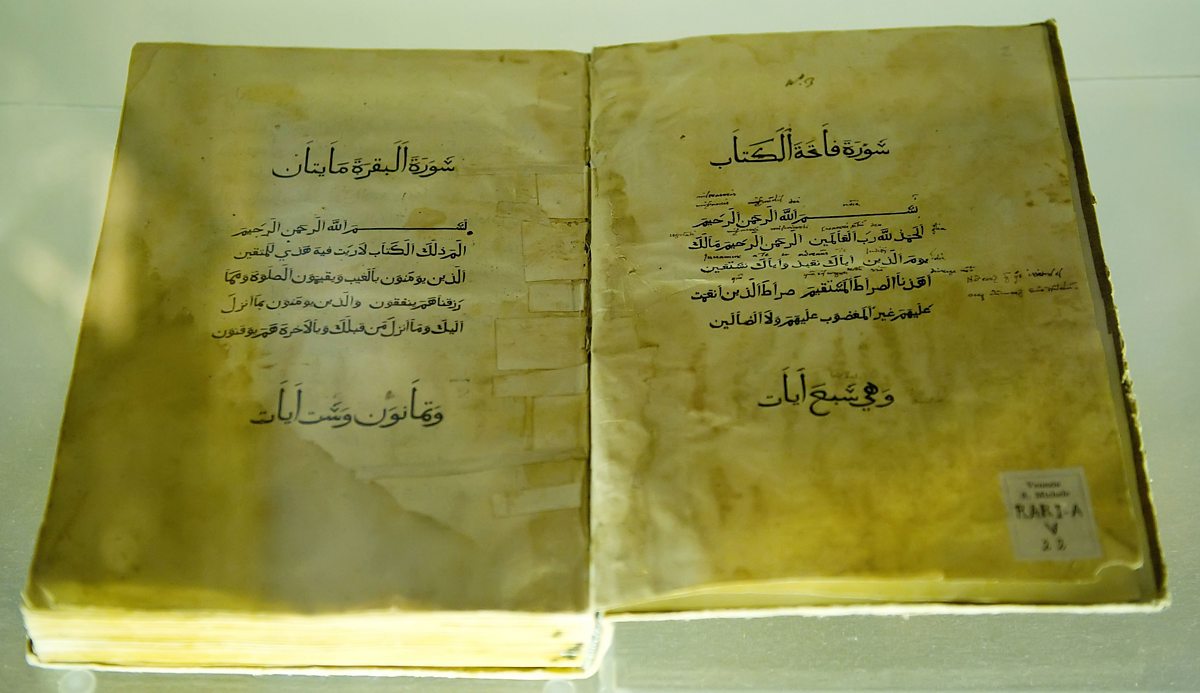 سورة فاتحة الكتاب
بسم الله الرحمن الرحيم
الحمد لله رب العالمين الرحمن الرحيم مالك
يوم الدين اياك نعبد واياك نستعين
اهدنا الصراط المستقيم صراط الذين انعمت
عليهم غير المغضوب عليهم ولا الضالين
وهي سبع ايات
RARI-A
V
22
سورة البقرة مايتان
بسم الله الرحمن الرحيم
الم ذلك الكتاب لا ريب فيه هدي للمتقين
الذين يومنون بالغيب ويقيمون الصلوة ومما
رزقناهم ينفقون والذين يومنون بما انزل
اليك وما انزل من قبلك وبالاخرة هم يوقنون
وثمانون وست ايات